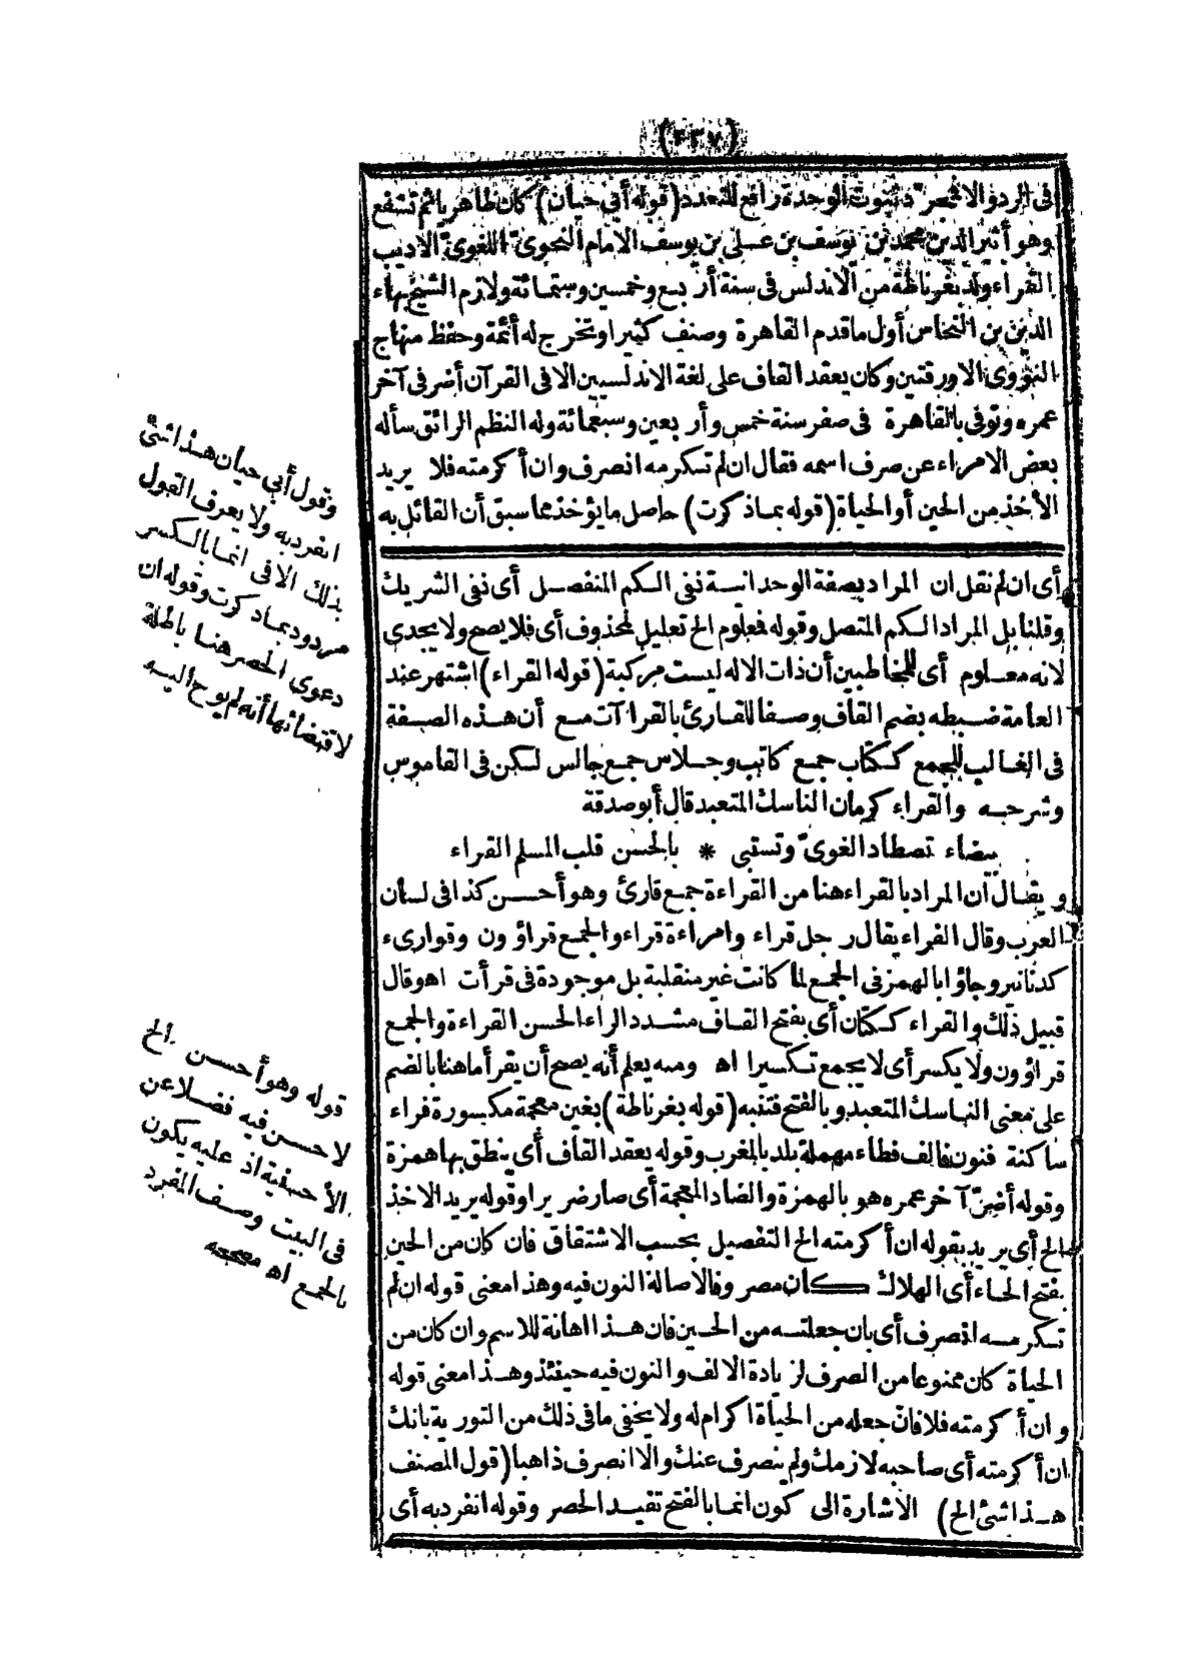 (٤٣٧)
فى الردو الا فثبوت الوحدة رافع للتعدد (قوله أبى حيان) كان ظاهريا ثم تشفع
وهو أثير الدين محمد بن يوسف بن على بن يوسف الامام النحوىّ اللغوىّ الاديب
القراء ولد بغرناطة من الاندلس فى سنة أربع وخمسين وستمائة ولازم الشيخ بهاء
الدين بن النحاس أول ما قدم القاهرة وصنف كثيرا وتخرج له أئمة وحفظ منهاج
النووى الا ورقتين وكان يعقد القاف على لغة الاندلسيين الا فى القرآن أضر فى آخر
عمره وتوفى بالقاهرة فى صفر سنة خمس وأربعين وسبعمائة وله النظم الرائق سأله
بعض الامراء عن صرف اسمه فقال ان لم تكرمه انصرف وان أكرمته فلا يريد
الأخذ من الحين أو الحياة (قوله بماذكرت) حاصل ما يؤخذ مما سبق أن القائل به
أى ان لم نقل ان المراد بصفة الوحدانية نفى الكم المنفصل أى نفى الشريك
وقلنا بل المراد الكم المتصل وقوله فعلوم الخ تعليل لمحذوف أى فلا يصح ولا يجدى
لانه معلوم أى للمخاطبين أن ذات الاله ليست مركبة (قوله القراء) اشتهر عند
العامة ضبطه بضم القاف وصفا للقارئ بالقراآت مع أن هذه الصفة
فى الغالب للجمع ككتاب جمع كاتب وجلاس جمع جالس لكن فى القاموس
وشرحه والقراء كرمان الناسك المتعبد قال أبو صدقة
بيضاء تصطاد الغوىّ وتستبى * بالحسن قلب المسلم القراء
ويقال ان المراد بالقراء هنا من القراءة جمع قارئ وهو أحسن كذا فى لسان
العرب وقال الفراء يقال رجل قراء وامراءة قراء والجمع قراؤون وقوارىء
كدنانير وجاؤا بالهمز فى الجمع لما كانت غير منقلبة بل موجودة فى قرأت اه وقال
قبيل ذلك والقراء ككتان أى بفتح القاف مشدد الراء الحسن القراءة والجمع
قراؤون ولا يكسر أى لا يجمع تكسيرا اه ومنه يعلم أنه يصح أن يقرأ ما هنا بالضم
على معنى الناسك المتعبد وبالفتح فتنبه (قوله بغرناطة) بغين معجمة مكسورة فراء
ساكنة فنون فالف فطاء مهملة بلد بالمغرب وقوله يعقد القاف أى ينطق بها همزة
وقوله أضرّ آخر عمره هو بالهمزة والضاد المعجمة أى صار ضريرا وقوله يريد الاخذ
الخ أى يريد بقوله ان أكرمته الخ التفصيل بحسب الاشتقاق فان كان من الحين
بفتح الحاء أى الهلاك كان مصروفا لاصالة النون فيه وهذا معنى قوله ان لم
تكرمه انصرف أى بان جعلته من الحين فان هذا اهانة للاسم وان كان من
الحياة كان ممنوعا من الصرف لزيادة الالف والنون فيه حينئذ وهذا معنى قوله
وان أكرمته فلا فان جعله من الحياة اكرام له ولا يخفى ما فى ذلك من التورية بانك
ان أكرمته أى صاحبه لازمك ولم ينصرف عنك والا انصرف ذاهبا (قول المصنف
هذا شئ الخ) الاشارة الى كون انما بالفتح تفيد الحصر وقوله انفرد به أى
وقول أبى حيان هذا شئ
انفرد به ولا يعرف القول
بذلك الا فى انما بالكسر
مردود بماذكرت وقوله ان
دعوى الحصر هنا باطلة
لاقتضائها أنه لم يوح اليه
قوله وهو أحسن الخ
لا حسن فيه فضلا عن
الأحسنية اذ عليه يكون
فى البيت وصف المفرد
بالجمع اه مصححه